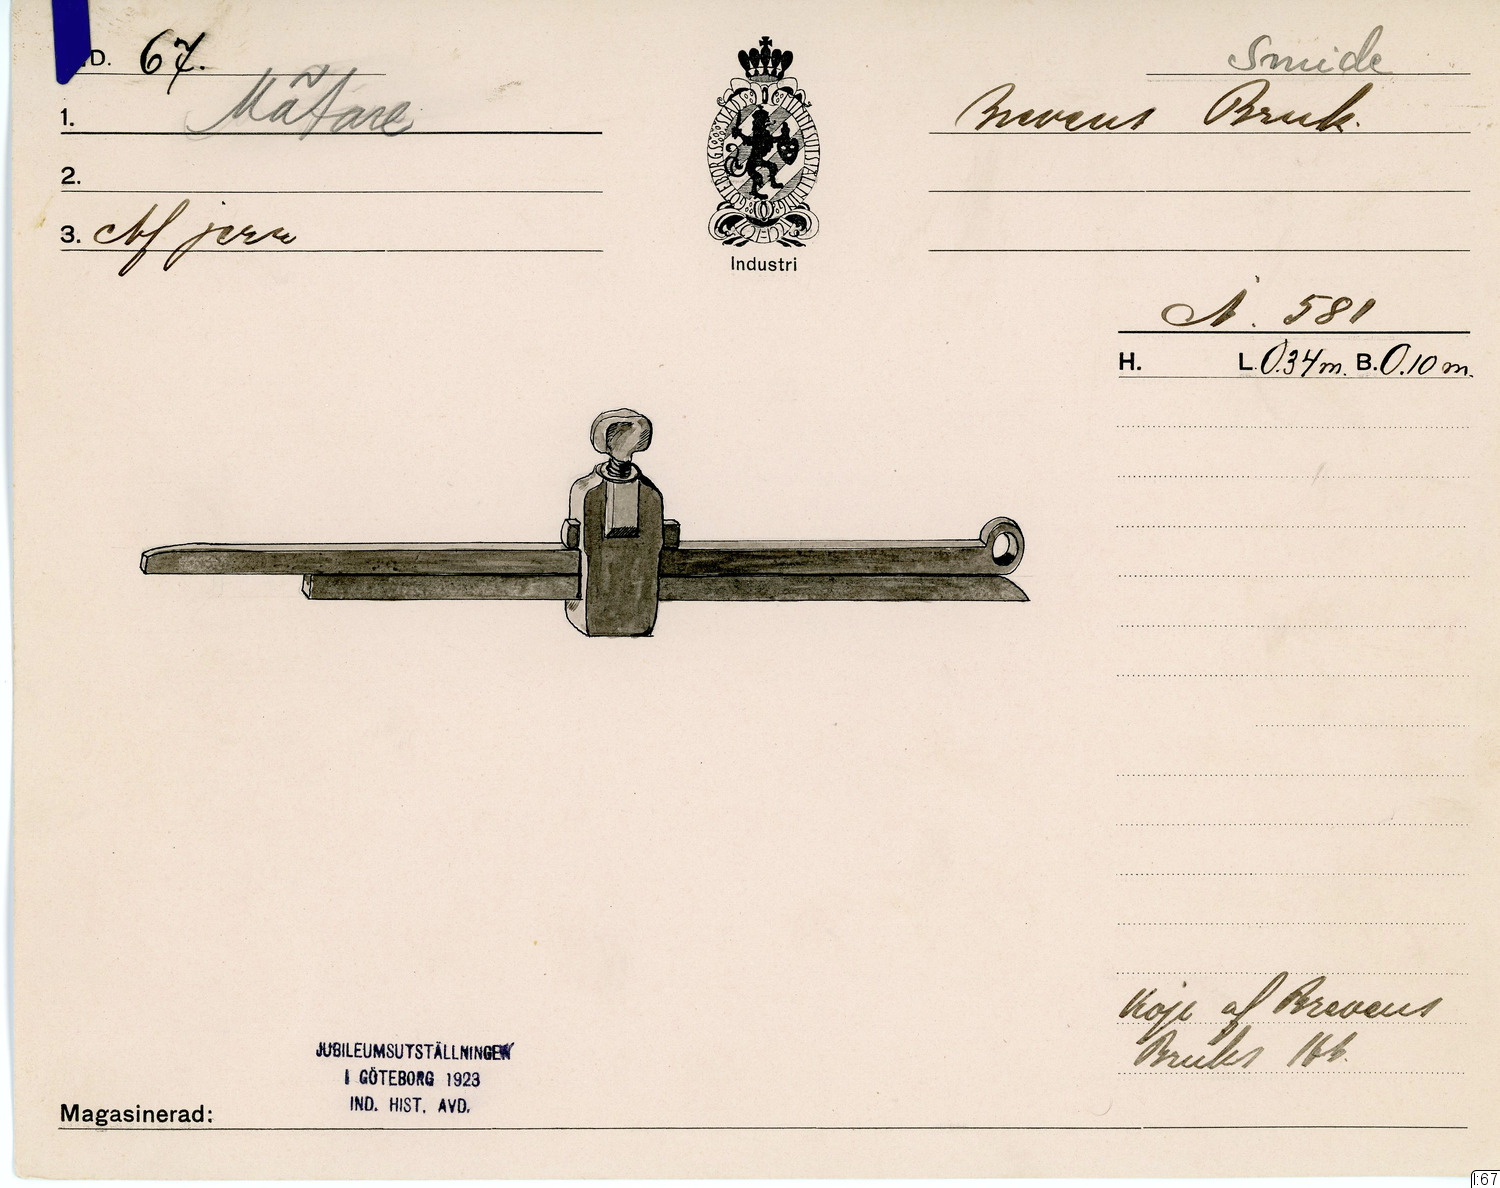 D. 67.
Smide
1. Mätare
Brevens Bruk.
2.
3. Af jern
GÖTEBORGS STADS MINNESUTSTÄLLNING
Industri
N. 581
H. L. 0.34 m. B. 0.10 m.
af Brevens
Bruks
JUBILEUMSUTSTÄLLNINGEN
I GÖTEBORG 1923
IND. HIST. AVD.
Magasinerad:
I:67